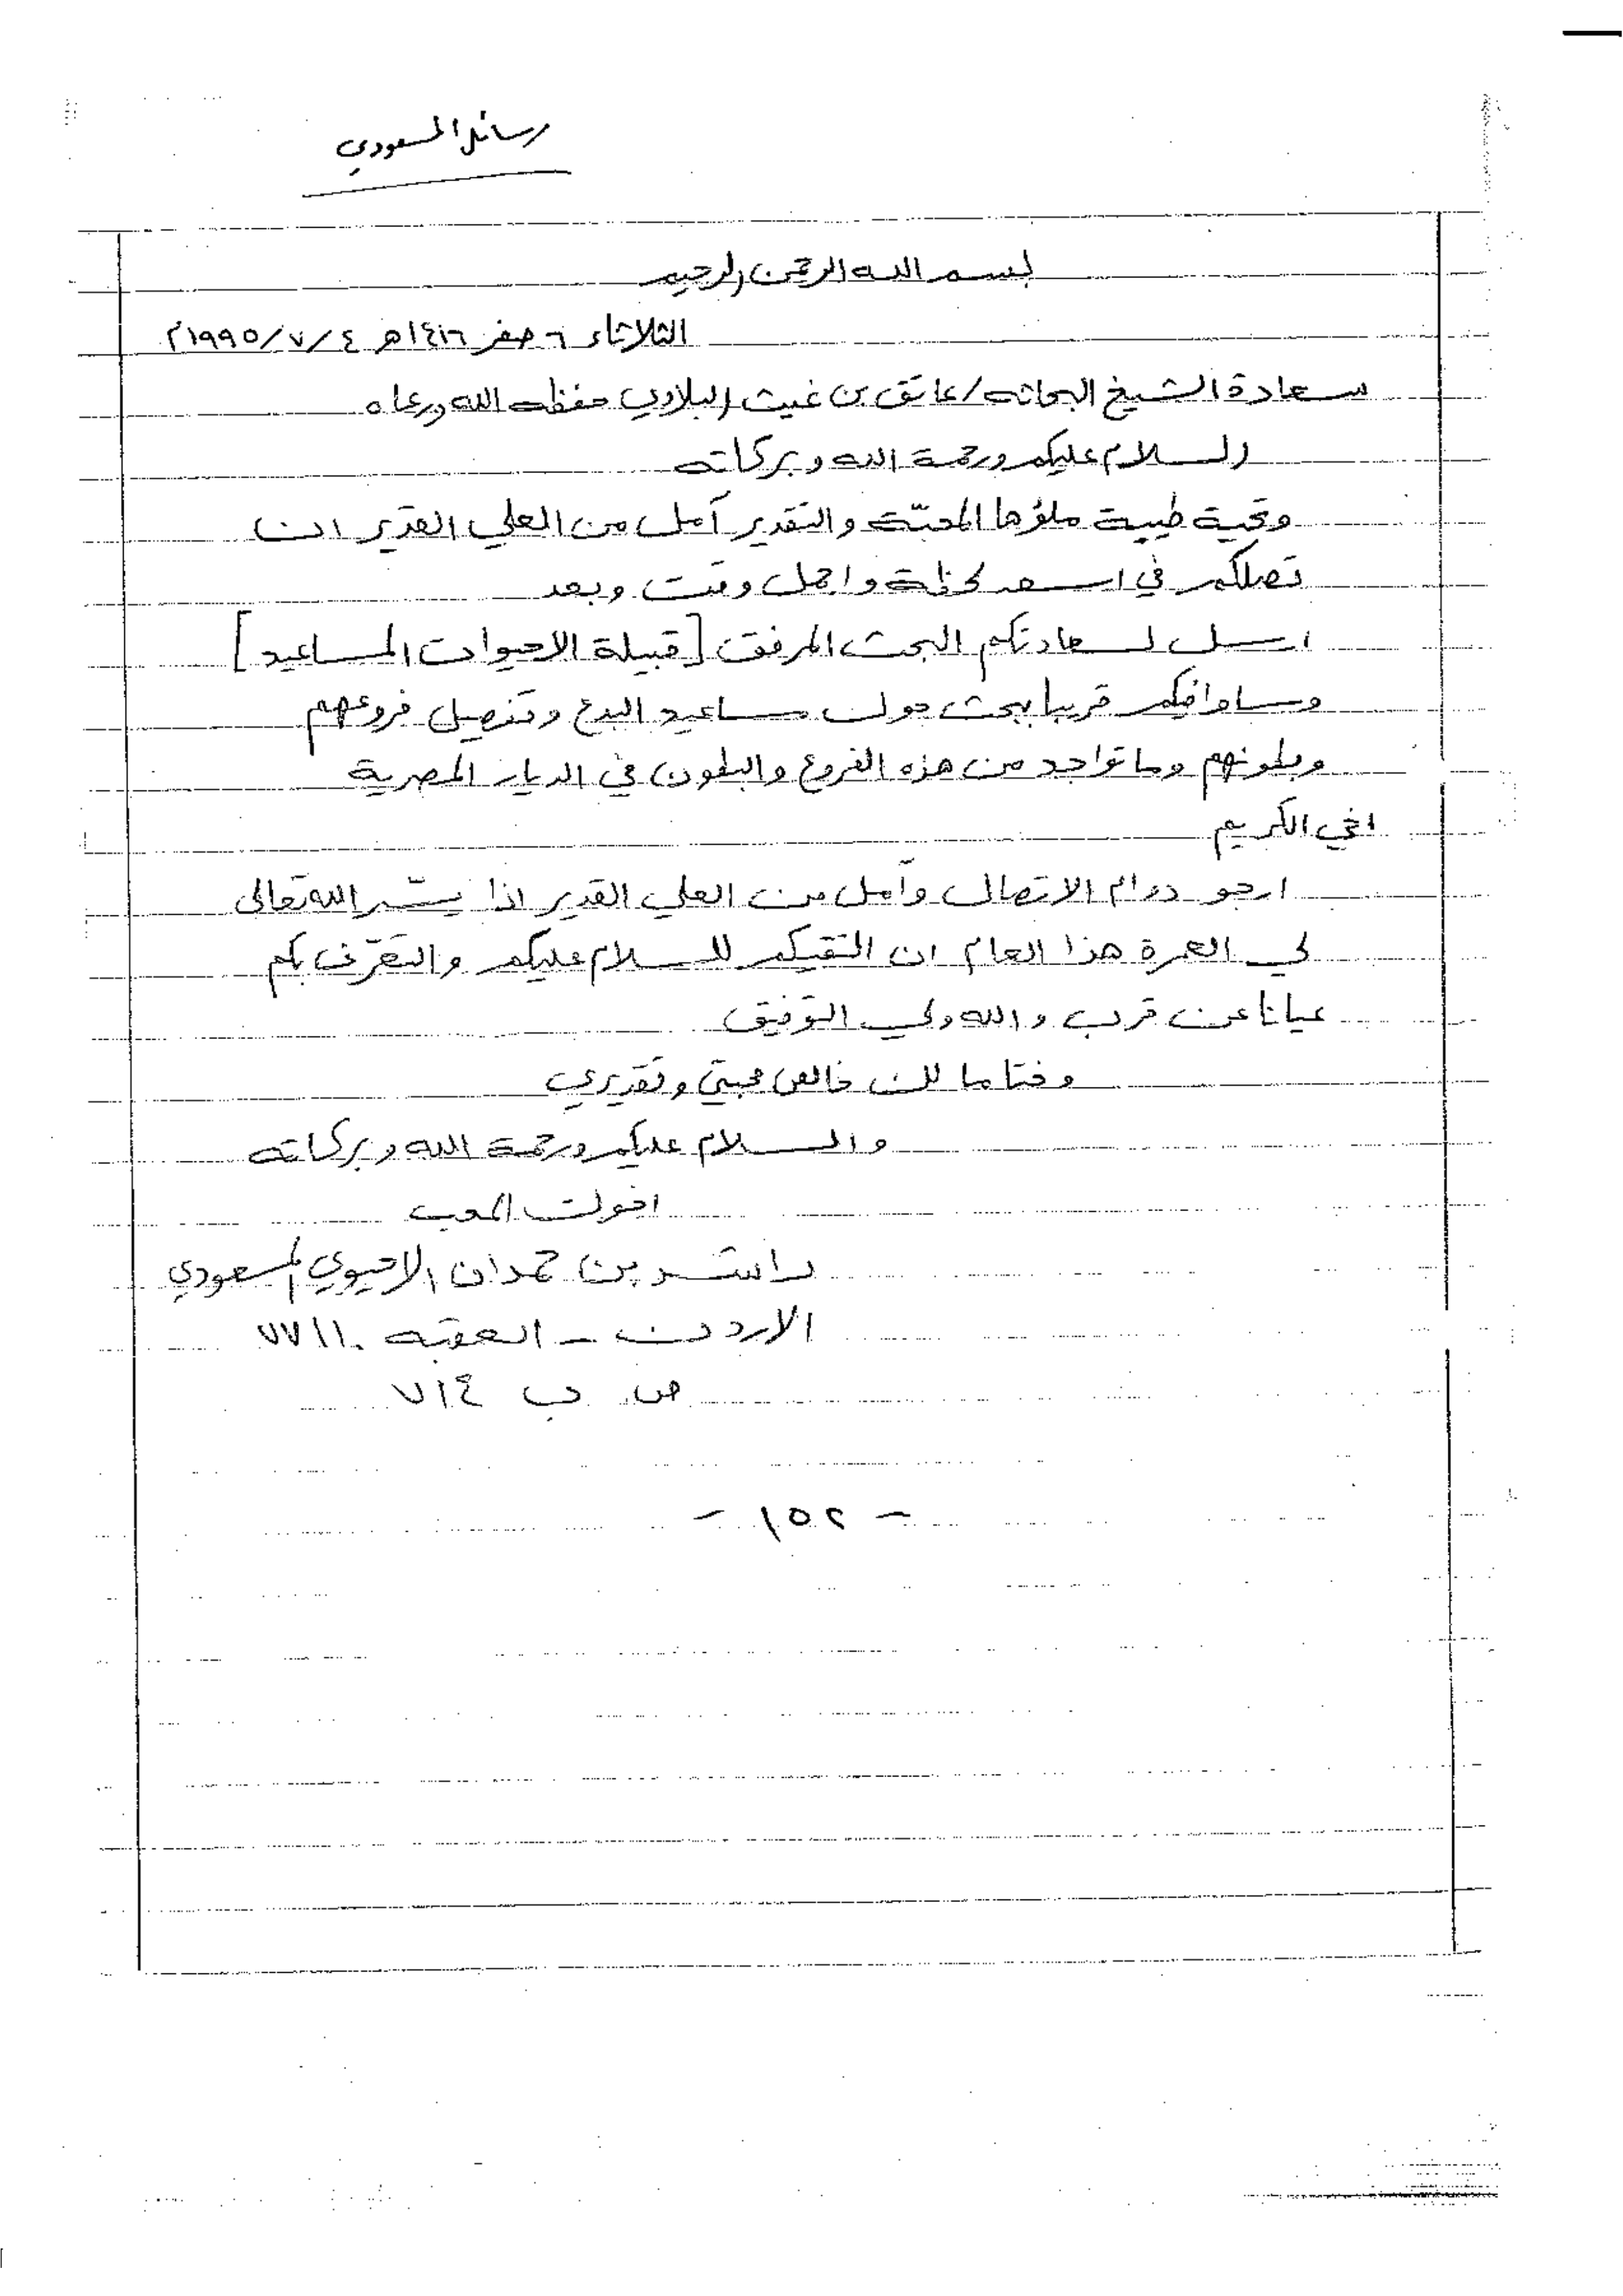 رسائل المسعودي
بسم الله الرحمن الرحيم
الثلاثاء ٦ صفر ١٤١٦هـ ٤/٧/١٩٩٥م
سعادة الشيخ البحاثه/عاتق بن غيث البلادي حفظه الله ورعاه
السلام عليكم ورحمة الله وبركاته
وتحية طيبة ملؤها المحبّة والتقدير آمل من العلي القدير ان
تصلكم في اسعد لحظة واجمل وقت وبعد
ارسل لسعادتكم البحث المرفق [قبيلة الاحيوات المساعيد]
وساوافيكم قريبا ببحث حول مساعيد البدع وتفصيل فروعهم
وبطونهم وما تواجد من هذه الفروع والبطون في الديار المصرية
اخي الكريم
ارجو دوام الاتصال وآمل من العلي القدير اذا يسّر الله تعالى
لي العمرة هذا العام ان التقيكم للسلام عليكم والتعرّف بكم
عيانا عن قرب والله ولي التوفيق
وختاما لك خالص محبتي وتقديري
والسلام عليكم ورحمة الله وبركاته
اخوك المحب
راشد بن حمدان الاحيوي المسعودي
الاردن - العقبه ٧٧١١٠
ص. ب ٧١٤
- ١٥٢ -